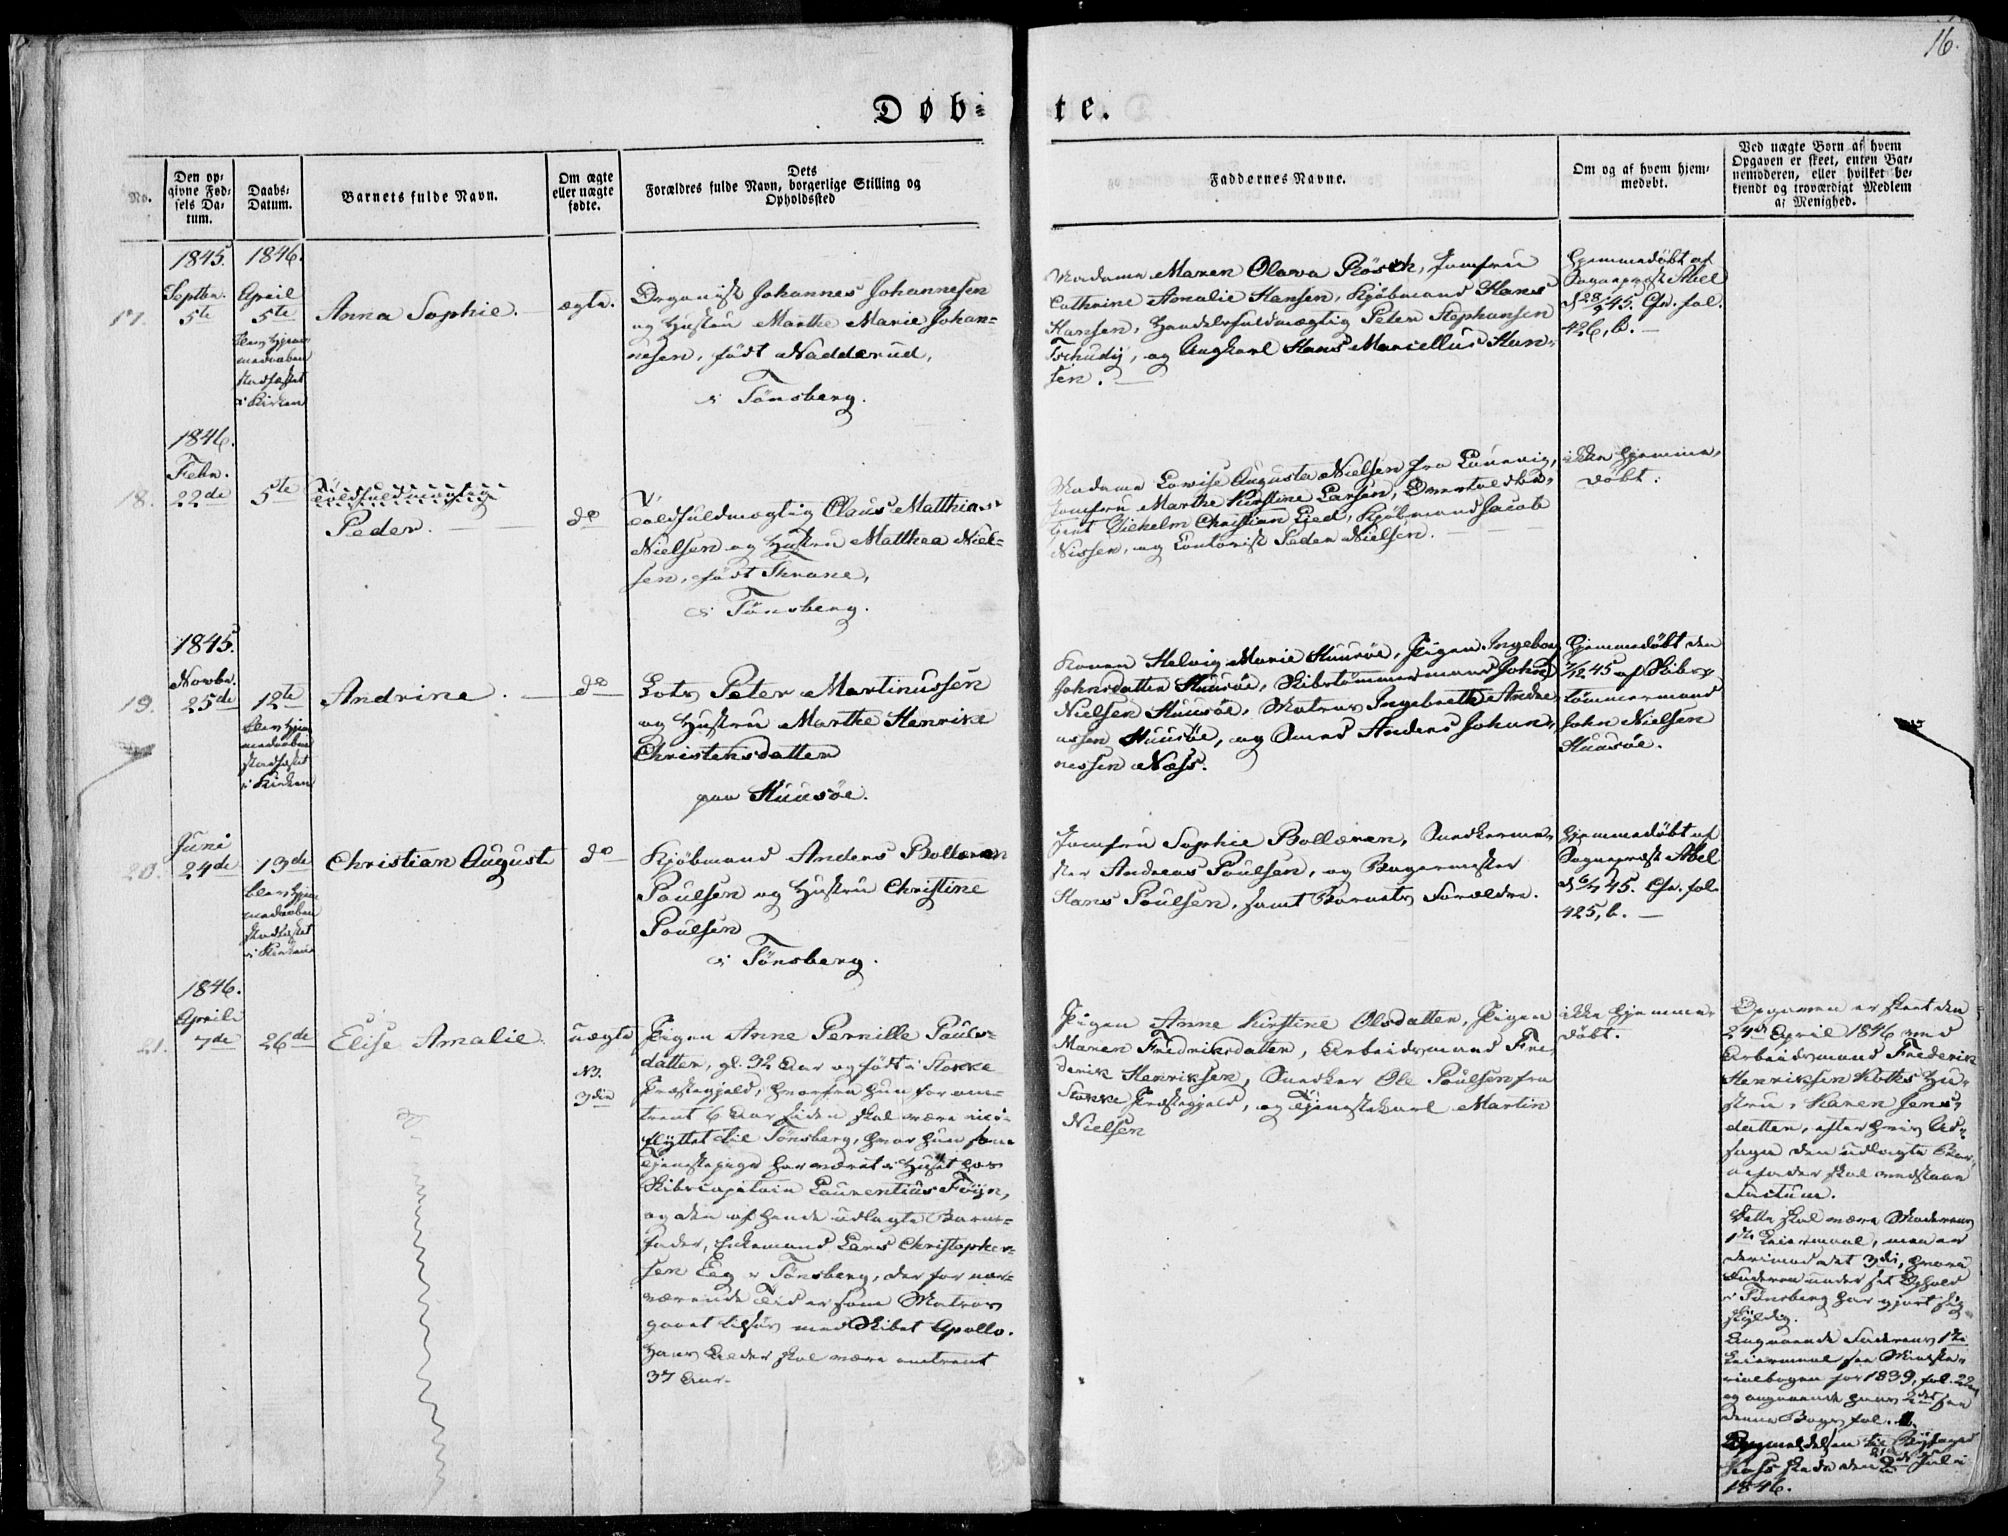 16.
Døb- te.
No.
Den op-
givne Fød-
sels Da-
tum.
Daabs-
Datum.
Barnets fulde Navn.
Om ægte
eller uægte
fødte.
Dets
Forældres fulde Navn, borgerlige Stilling og
Opholdssted
Faddernes Navne.
Om og af hvem hjem-
medøbt.
Ved uægte Børn af hvem
Opgaven er skeet, enten Bar-
nemoderen, eller hvilket be-
kjendt og troværdigt Medlem
af Menighed.
17.
1845.
Septbr.
5te
1846.
April
5te
blev Hjem-
medaaben
stadfæstet
i Kirken
Anna Sophie.
ægte.
Organist Johannes Johannesen
og Hustru Marthe Marie Johan-
nesen, født Nadderud,
i Tønsberg.
Madame Maren Olava Rösch, Jomfru
Cathrine Amalie Hansen, Kjøbmand Hans
Hansen, Handelsfuldmægtig Peter Stephansen
Tschudy, og Ungkarl Hans Marcellus Han-
sen.
Hjemmedøbt af
Sogneprest Abel
d 28/9 45. Cfr. fol.
426, b.
18.
1846.
Febr.
22de
5te
Toldfuldmægtig
Peder.
do
Toldfuldmægtig Claus Matthias
Nielsen og Hustru Matthea Niel-
sen, født Thrane,
i Tønsberg.
Madame Lovise Augusta Nielsen fra Laurvig,
Jomfru Marthe Kirstine Larsen, Overtoldbe-
tjent Vilhelm Christian Lied, Kjøbmand Jacob
Nissen, og Contorist Peder Nielsen.
ikke hjemme-
døbt.
19.
1845.
Novbr.
25de
12te
blev Hjem-
medaaben
stadfæstet
i Kirken
Andrine.
do
Lots Peter Martinussen
og Hustru Marthe Henrike
Christensdatter
paa Huusøe.
Konen Helvig Marie Huusøe, Pigen Ingeborg
Johnsdatter Huusøe, Skibstømmermand John
Nielsen Huusøe, Matros Ingebreth Andre-
assen Huusøe, og Smed Anders Johan-
nessen Næss.
Hjemmedøbt den
7/12 45 af Skibs-
tømmermand
John Nielsen
Huusøe.
20.
Juni
24de
13de
blev Hjem-
medaaben
stadfæstet
i Kirken
Christian August
do
Kjøbmand Anders Bolleren
Poulsen og Hustru Christine
Poulsen
i Tønsberg.
Jomfru Sophie Bolleren, Snedkerme-
ster Andreas Poulsen, og Bagermester
Hans Poulsen, samt Barnets Forældre.
Hjemmedøbt af
Sogneprest Abel
45. Cfr. fol.
425, b.
21.
1846.
April
7de
26de
Elise Amalie.
uægte
NB.
3die
Pigen Anne Pernille Pouls-
datter, gl. 32 Aar og født i Stokke
Præstegjeld, hvorfra hun for om-
trent 6 Aar siden skal være ind-
flyttet til Tønsberg, hvor hun som
Tjenestepige har været i Huset hos
Skibscapitain Laurentius Föyn,
og den af hende udlagte Barne-
fader, Enkemand Lars Christopher-
sen Eeg i Tønsberg, der for nær-
værende Tid er som Matros
gaaet tilsøes med Skibet Apollo.
Hans Alder skal være omtrent
37 Aar.
Pigen Anne Kirstine Olsdatter, Pigen
Maren Fredriksdatter, Arbeidsmand Fre-
derik Henriksen, Snedker Ole Poulsen fra
Stokke Præstegjeld, og Tjenestekarl Martin
Nielsen
ikke hjemme-
døbt.
Opgaven er skeet den
24de April 1846 ved
Arbeidsmand Frederik
Henriksen Holtes Hu-
stru, Karen Jens-
datter, efter hvis Ud-
sagn den udlagte Bar-
nefader skal vedstaae
Factum.
Dette skal være Moderens
1ste Leiermaal, men er
derimod det 3die, hvori
Faderen under sit Ophold
i Tønsberg har gjort sig
skyldig.
Angaaende Faderens 1ste
Leiermaal see Ministe-
rialbogen for 1839, fol. 22
og angaaende hans 2det see
denne Bogs fol.
Anmeldelsen til Byfoged
skede den 2de Juli
1846.